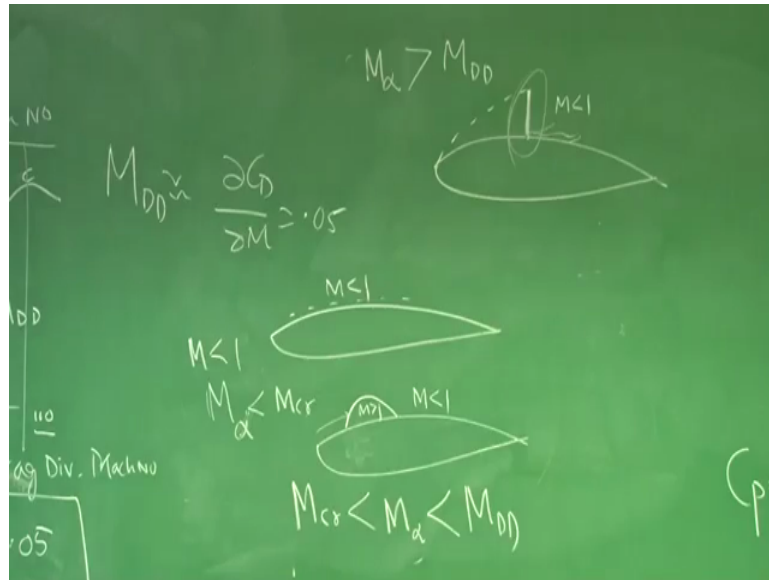 NO
M_α > M_DD
M<1
M_DD ≈ ∂C_D/∂M = .05
M<1
DD
M<1
M_α < M_cr
M>1
M<1
Div. Mach No
M_cr < M_α < M_DD
C_p
.05